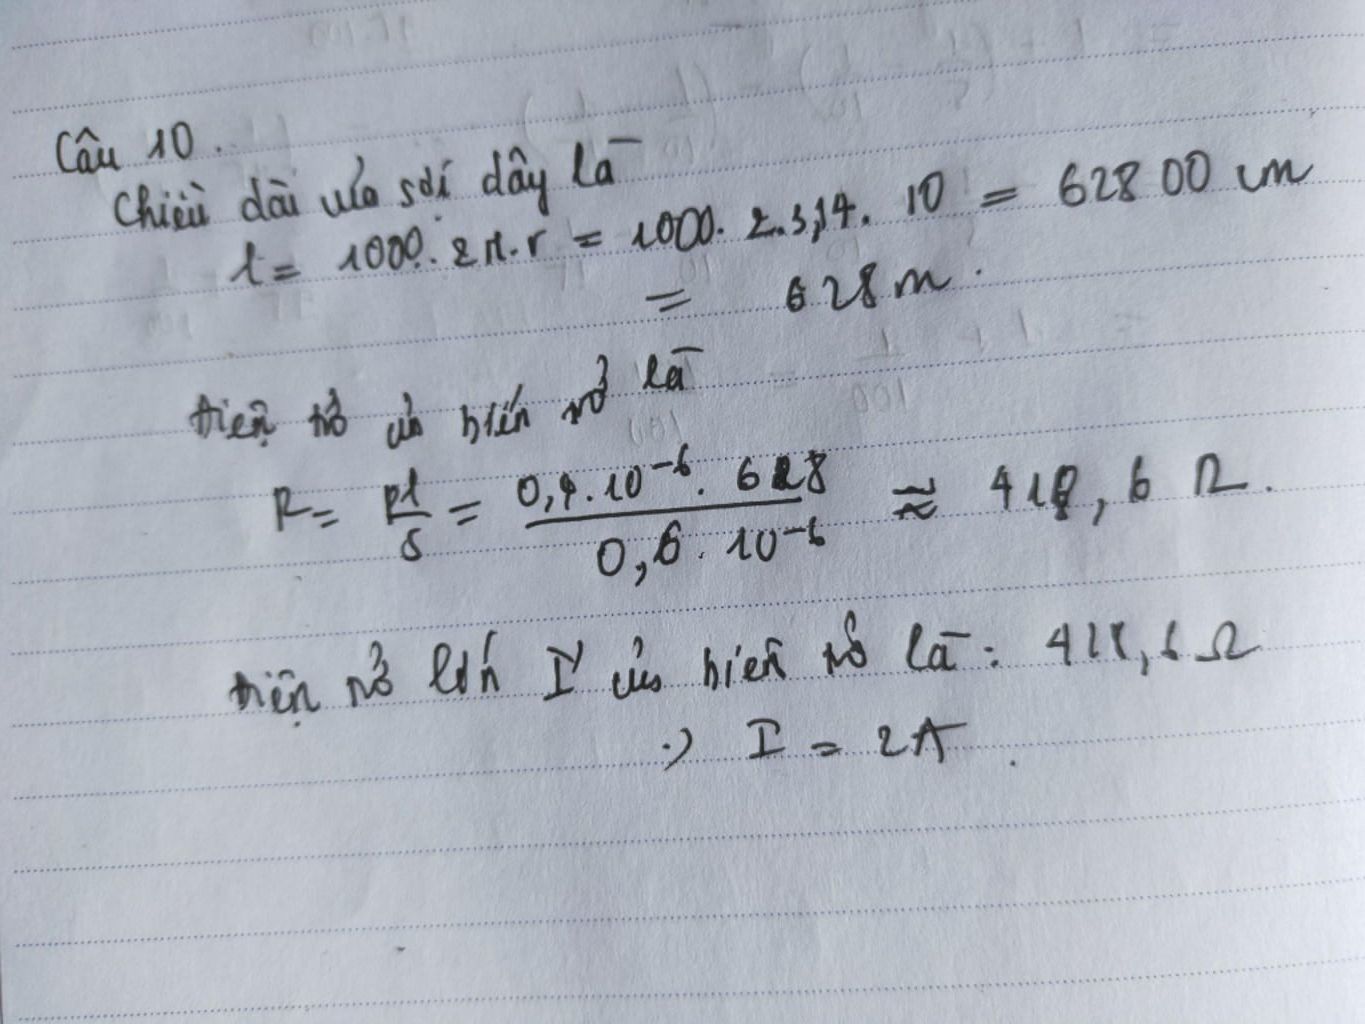 Câu 10.
Chiều dài của sợi dây là
l = 1000. 2π.r = 1000. 2.3,14. 10 = 62800 cm
= 628 m.
điện trở của biến trở là
R = ρl/S = 0,4.10⁻⁶. 628 / 0,6. 10⁻⁶ ≈ 418,6 Ω.
điện trở lớn I' của biến trở là: 418,6 Ω
I = 2A.